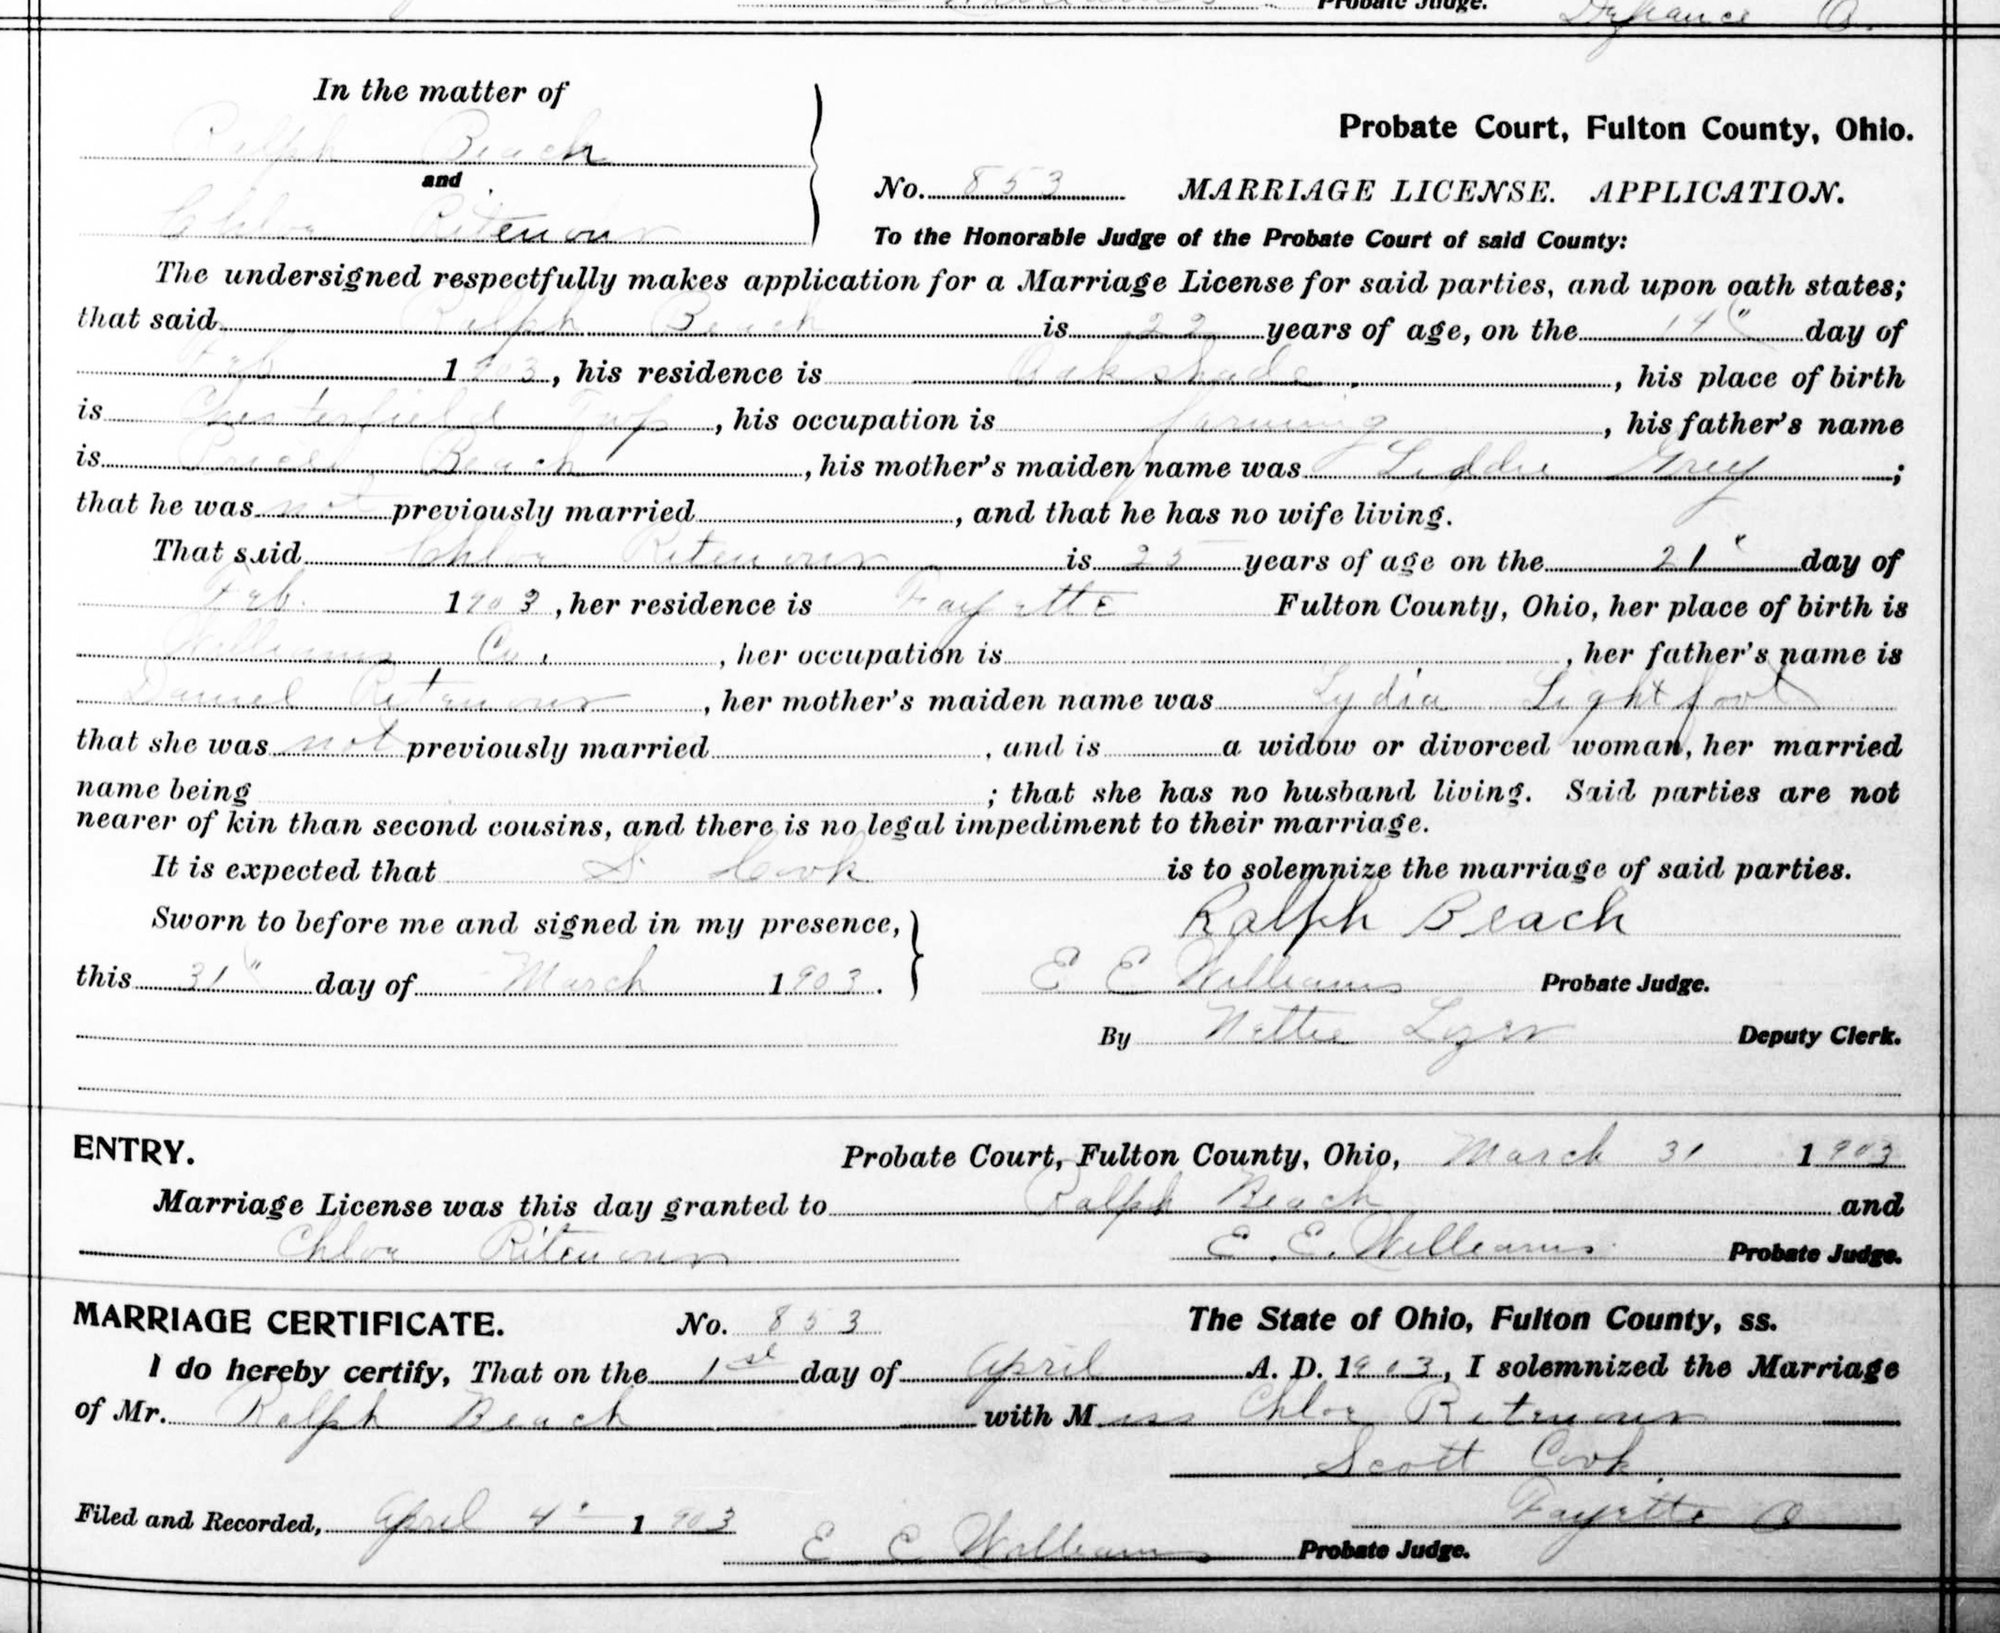 Probate Judge.
Defiance O.
In the matter of
Ralph Beach
and
Chloe Ritenour
Probate Court, Fulton County, Ohio.
No. 853 MARRIAGE LICENSE. APPLICATION.
To the Honorable Judge of the Probate Court of said County:
The undersigned respectfully makes application for a Marriage License for said parties, and upon oath states;
that said Ralph Beach is 22 years of age, on the 14" day of
Feb 1903, his residence is Oakshade, his place of birth
is Chesterfield Twp, his occupation is farming, his father's name
is Beach, his mother's maiden name was Liddie Grey;
that he was not previously married, and that he has no wife living.
That said Chloe Ritenour is 25 years of age on the 21" day of
Feb. 1903, her residence is Fayette Fulton County, Ohio, her place of birth is
Williams Co., her occupation is, her father's name is
Daniel Ritenour, her mother's maiden name was Lydia Lightfoot
that she was not previously married, and is a widow or divorced woman, her married
name being ; that she has no husband living. Said parties are not
nearer of kin than second cousins, and there is no legal impediment to their marriage.
It is expected that S. Cook is to solemnize the marriage of said parties.
Sworn to before me and signed in my presence, Ralph Beach
this 31" day of March 1903. E E Williams Probate Judge.
By Nettie Deputy Clerk.
ENTRY. Probate Court, Fulton County, Ohio, March 31 1903
Marriage License was this day granted to Ralph Beach and
Chloe Ritenour E. E. Williams Probate Judge.
MARRIAGE CERTIFICATE. No. 853 The State of Ohio, Fulton County, ss.
I do hereby certify, That on the 1st day of April A. D. 1903, I solemnized the Marriage
of Mr. Ralph Beach with Miss Chloe Ritenour
Scott Cook.
Fayette O
Filed and Recorded, April 4" 1903
E E Williams Probate Judge.